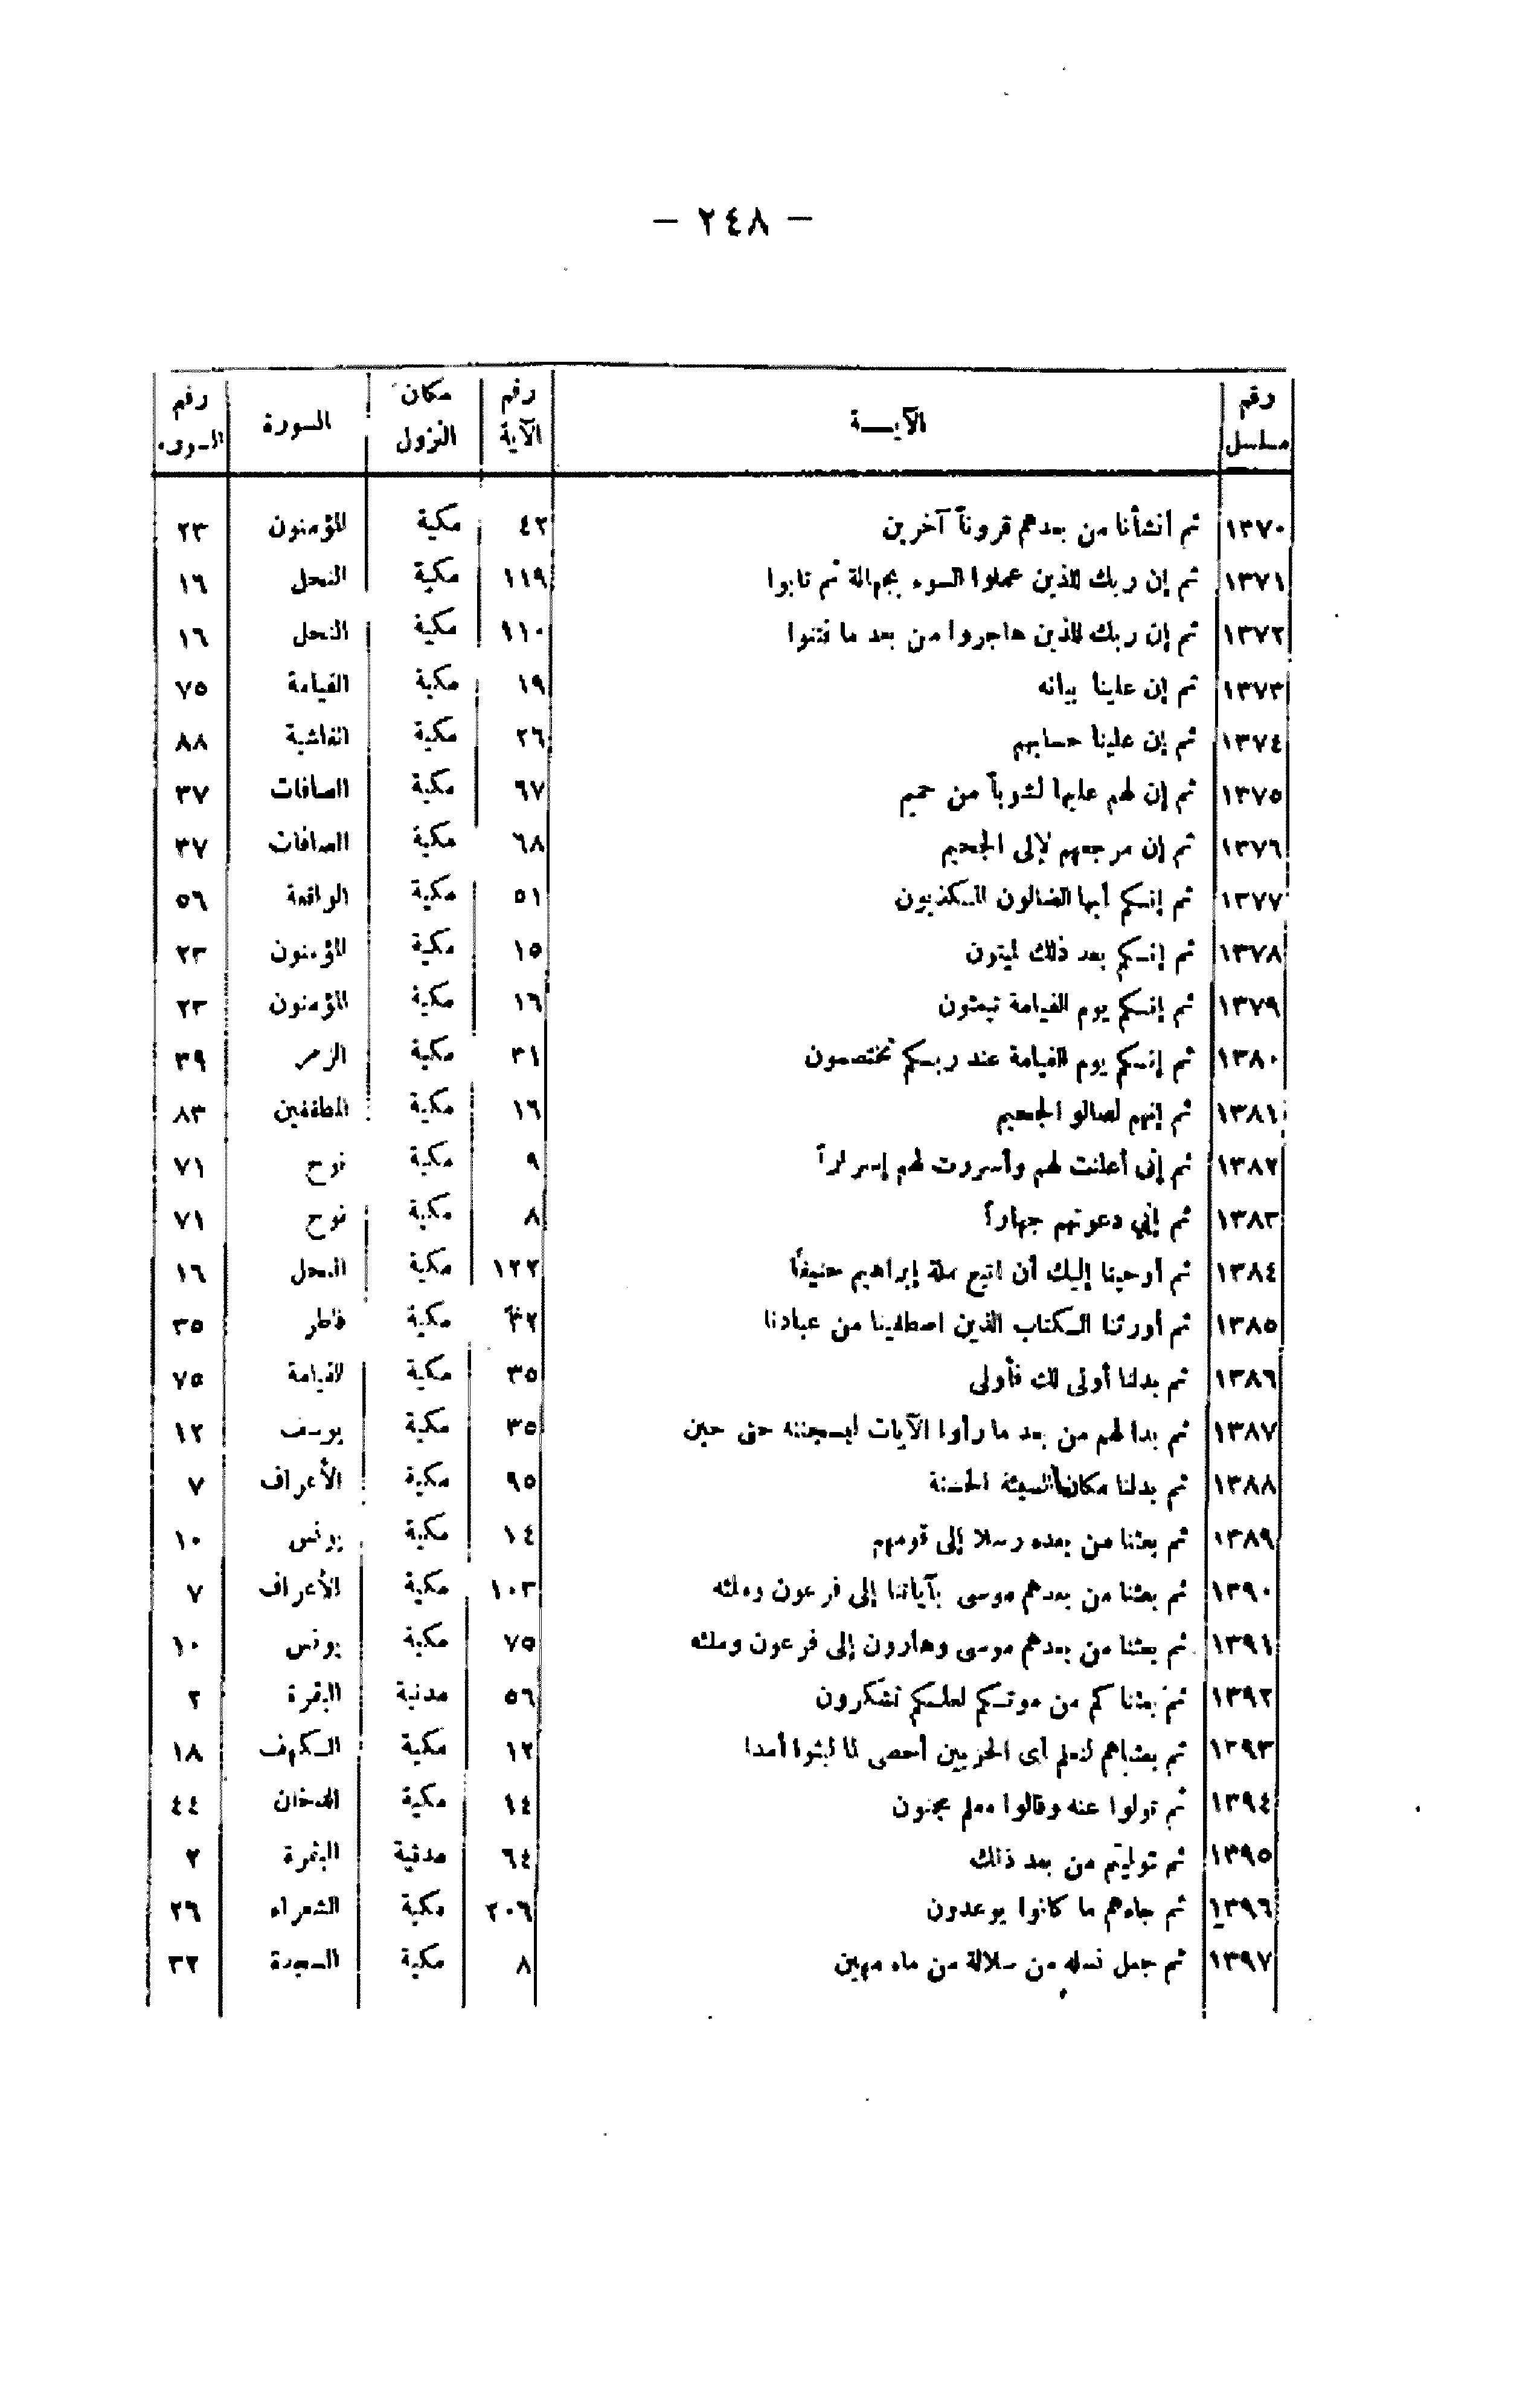 — ٢٤٨ —
رقم مسلسل | الآيـــة | رقم الآية | مكان النزول | السورة | رقم السورة
١٣٧٠ | ثم أنشأنا من بعدهم قروناً آخرين | ٤٢ | مكية | المؤمنون | ٢٣
١٣٧١ | ثم إن ربك للذين عملوا السوء بجهالة ثم تابوا | ١١٩ | مكية | النحل | ١٦
١٣٧٢ | ثم إن ربك للذين هاجروا من بعد ما فتنوا | ١١٠ | مكية | النحل | ١٦
١٣٧٣ | ثم إن علينا بيانه | ١٩ | مكية | القيامة | ٧٥
١٣٧٤ | ثم إن علينا حسابهم | ٢٦ | مكية | الغاشية | ٨٨
١٣٧٥ | ثم إن لهم عليها لشوباً من حميم | ٦٧ | مكية | الصافات | ٣٧
١٣٧٦ | ثم إن مرجعهم لإلى الجحيم | ٦٨ | مكية | الصافات | ٣٧
١٣٧٧ | ثم إنكم أيها الضالون المكذبون | ٥١ | مكية | الواقعة | ٥٦
١٣٧٨ | ثم إنكم بعد ذلك لميتون | ١٥ | مكية | المؤمنون | ٢٣
١٣٧٩ | ثم إنكم يوم القيامة تبعثون | ١٦ | مكية | المؤمنون | ٢٣
١٣٨٠ | ثم إنكم يوم القيامة عند ربكم تختصمون | ٣١ | مكية | الزمر | ٣٩
١٣٨١ | ثم إنهم لصالو الجحيم | ١٦ | مكية | المطففين | ٨٣
١٣٨٢ | ثم إنى أعلنت لهم وأسررت لهم إسراراً | ٩ | مكية | نوح | ٧١
١٣٨٣ | ثم إني دعوتهم جهاراً | ٨ | مكية | نوح | ٧١
١٣٨٤ | ثم أوحينا إليك أن اتبع ملة إبراهيم حنيفاً | ١٢٢ | مكية | النحل | ١٦
١٣٨٥ | ثم أورثنا الكتاب الذين اصطفينا من عبادنا | ٣٢ | مكية | فاطر | ٣٥
١٣٨٦ | ثم بدلنا أولى لك فأولى | ٣٥ | مكية | القيامة | ٧٥
١٣٨٧ | ثم بدا لهم من بعد ما رأوا الآيات ليسجننه حتى حين | ٣٥ | مكية | يوسف | ١٢
١٣٨٨ | ثم بدلنا مكان السيئة الحسنة | ٩٥ | مكية | الأعراف | ٧
١٣٨٩ | ثم بعثنا من بعده رسلا إلى قومهم | ١٤ | مكية | يونس | ١٠
١٣٩٠ | ثم بعثنا من بعدهم موسى بآياتنا إلى فرعون وملئه | ١٠٣ | مكية | الأعراف | ٧
١٣٩١ | ثم بعثنا من بعدهم موسى وهارون إلى فرعون وملئه | ٧٥ | مكية | يونس | ١٠
١٣٩٢ | ثم بعثناكم من موتكم لعلكم تشكرون | ٥٦ | مدنية | البقرة | ٢
١٣٩٣ | ثم بعثناهم لنعلم أى الحزبين أحصى لما لبثوا أمدا | ١٢ | مكية | الكهف | ١٨
١٣٩٤ | ثم تولوا عنه وقالوا معلم مجنون | ١٤ | مكية | الدخان | ٤٤
١٣٩٥ | ثم توليتم من بعد ذلك | ٦٤ | مدنية | البقرة | ٢
١٣٩٦ | ثم جاءهم ما كانوا يوعدون | ٢٠٦ | مكية | الشعراء | ٢٦
١٣٩٧ | ثم جعل نسله من سلالة من ماء مهين | ٨ | مكية | السجدة | ٣٢